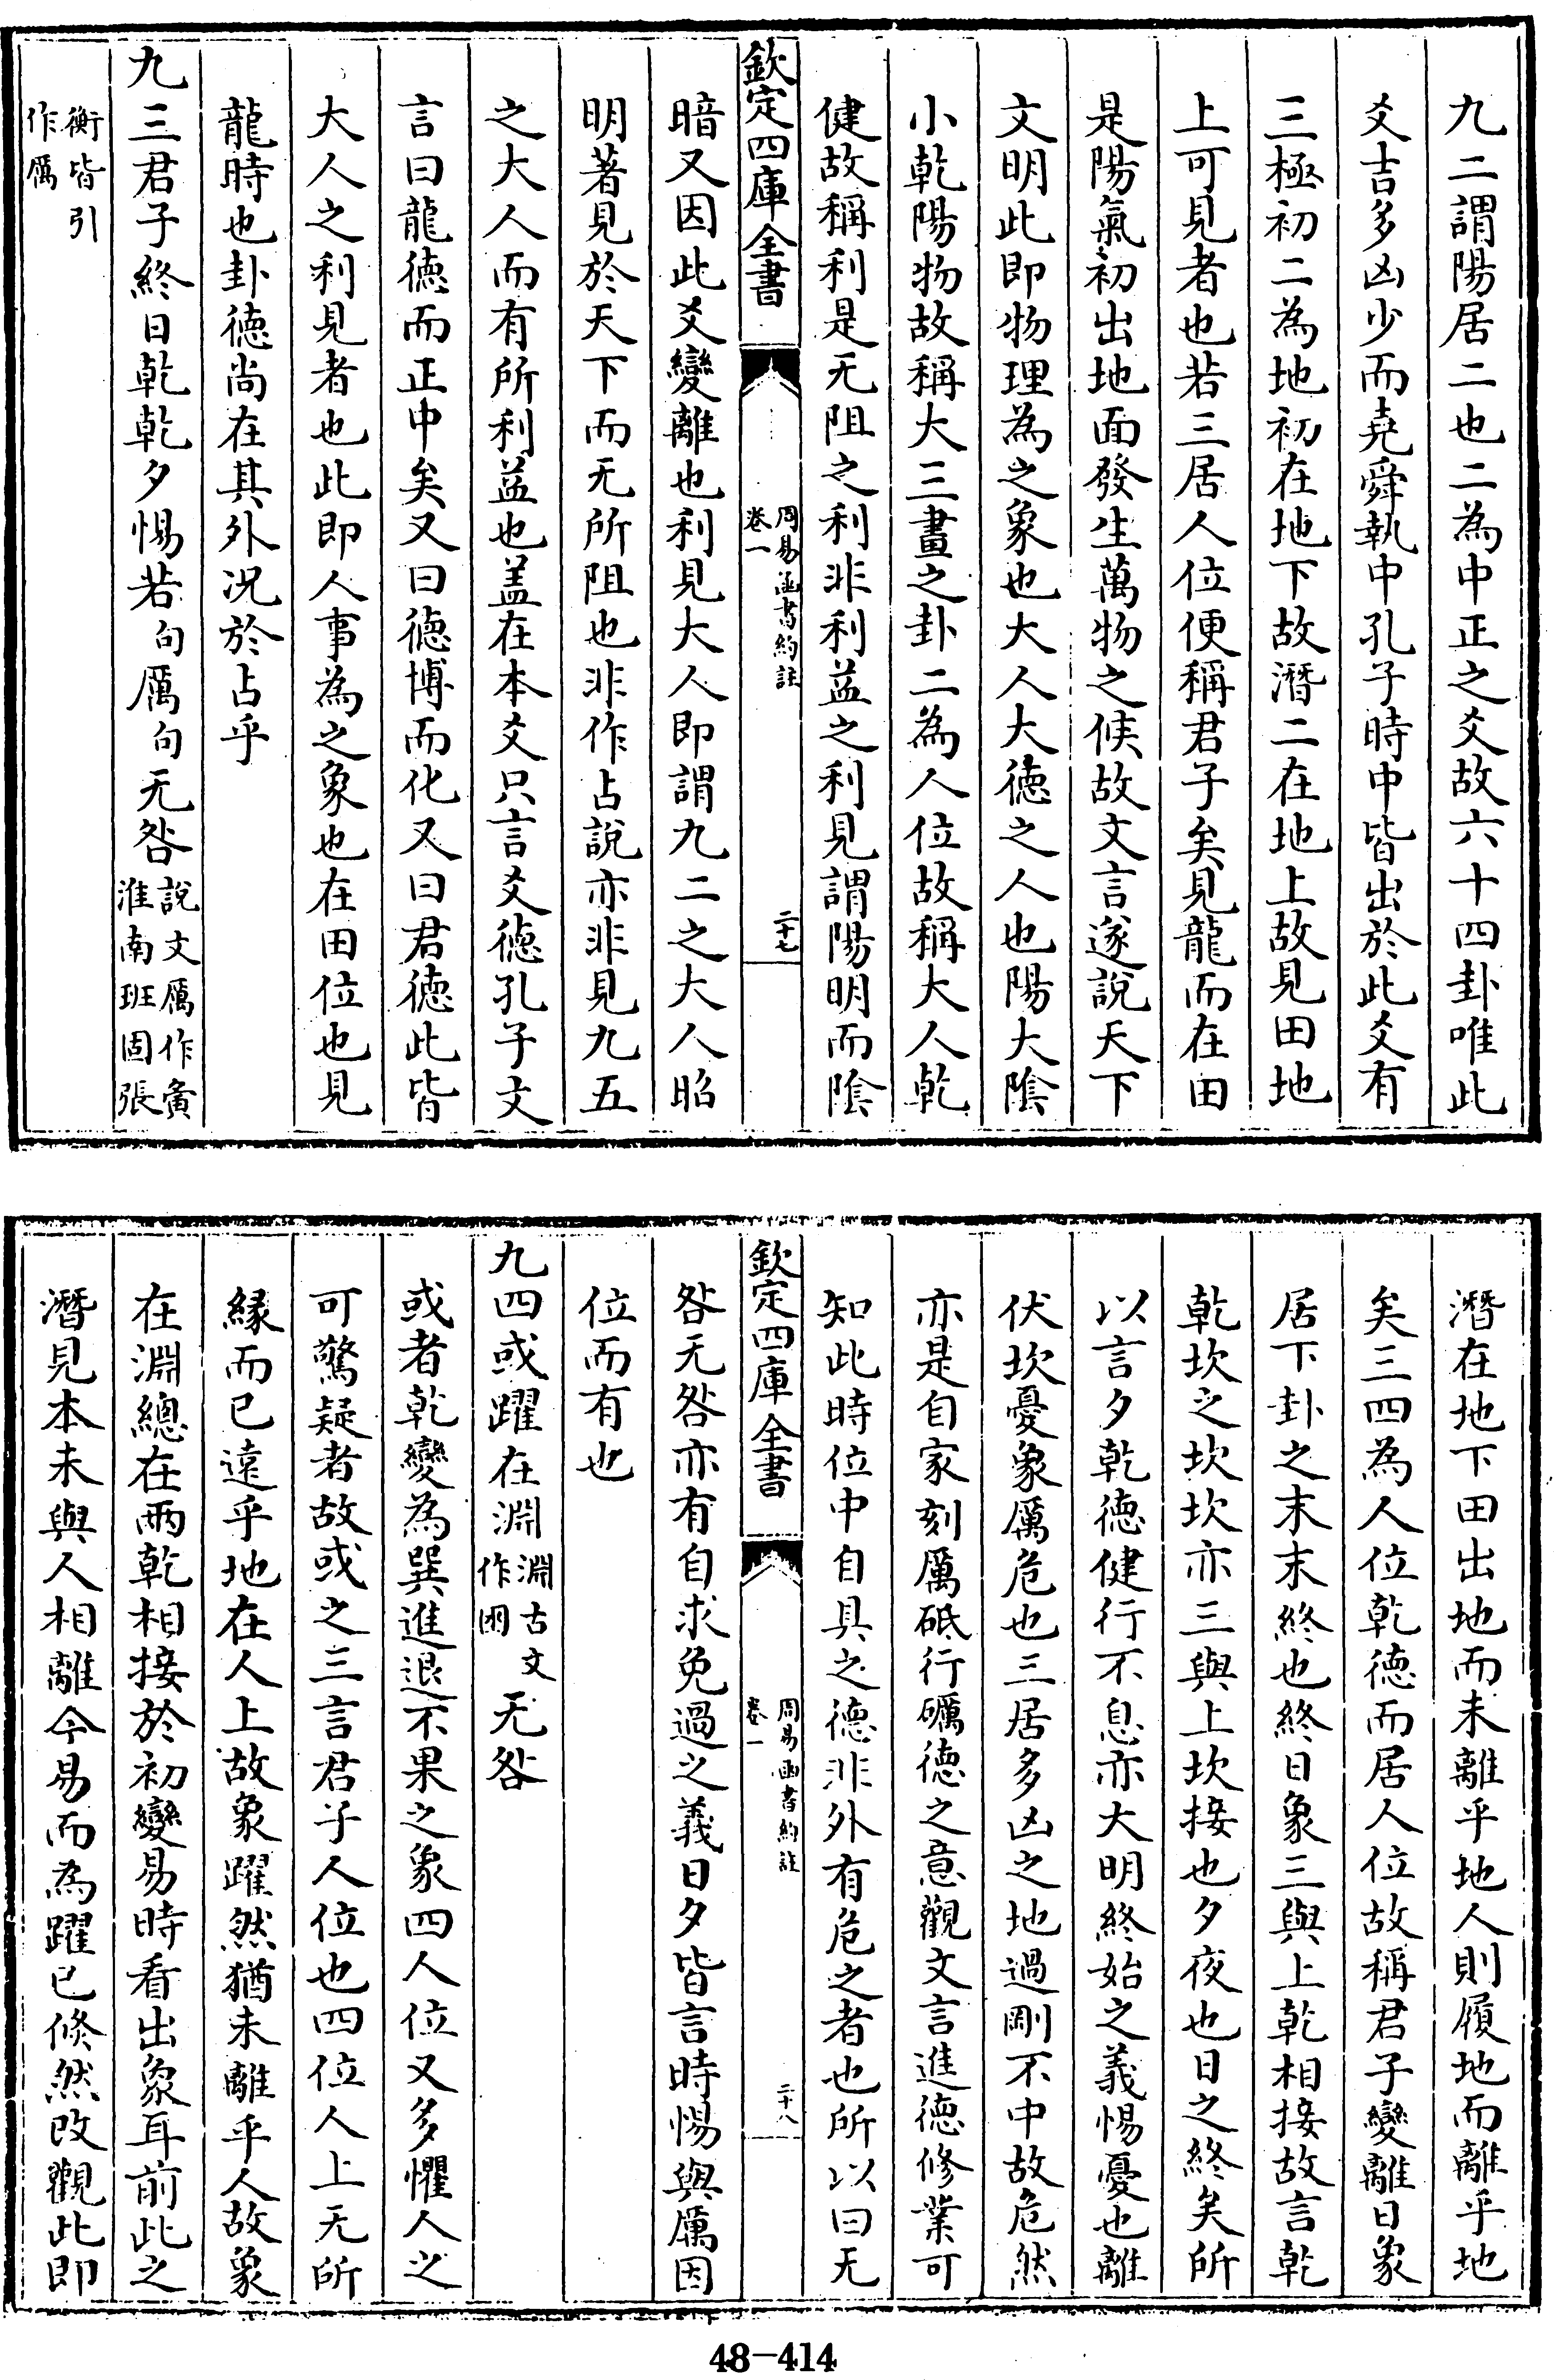 九二謂陽居二也二為中正之爻故六十四卦唯此
爻吉多凶少而堯舜執中孔子時中皆出於此爻有
三極初二為地初在地下故潛二在地上故見田地
上可見者也若三居人位便稱君子矣見龍而在田
是陽氣初出地面發生萬物之候故文言遂說天下
文明此即物理為之象也大人大德之人也陽大陰
小乾陽物故稱大三畫之卦二為人位故稱大人乾
健故稱利是无阻之利非利益之利見謂陽明而陰
欽定四庫全書
周易函書約註
卷一
二十七
暗又因此爻變離也利見大人即謂九二之大人昭
明著見於天下而无所阻也非作占說亦非見九五
之大人而有所利益也蓋在本爻只言爻德孔子文
言曰龍德而正中矣又曰德博而化又曰君德此皆
大人之利見者也此即人事為之象也在田位也見
龍時也卦德尚在其外况於占乎
九三君子終日乾乾夕惕若句厲句无咎說文厲作夤
淮南班固張
衡皆引
作厲
潛在地下田出地而未離乎地人則履地而離乎地
矣三四為人位乾德而居人位故稱君子變離日象
居下卦之末末終也終日象三與上乾相接故言乾
乾坎之坎坎亦三與上坎接也夕夜也日之終矣所
以言夕乾德健行不息亦大明終始之義惕憂也離
伏坎憂象厲危也三居多凶之地過剛不中故危然
亦是自家刻厲砥行礪德之意觀文言進德修業可
知此時位中自具之德非外有危之者也所以曰无
欽定四庫全書
周易函書約註
卷一
二十八
咎无咎亦有自求免過之義日夕皆言時惕與厲因
位而有也
九四或躍在淵淵古文
作囦无咎
或者乾變為巽進退不果之象四人位又多懼人之
可驚疑者故或之三言君子人位也四位人上无所
緣而已遠乎地在人上故象躍然猶未離乎人故象
在淵總在兩乾相接於初變易時看出象耳前此之
潛見本未與人相離今易而為躍已倐然改觀此即
48-414